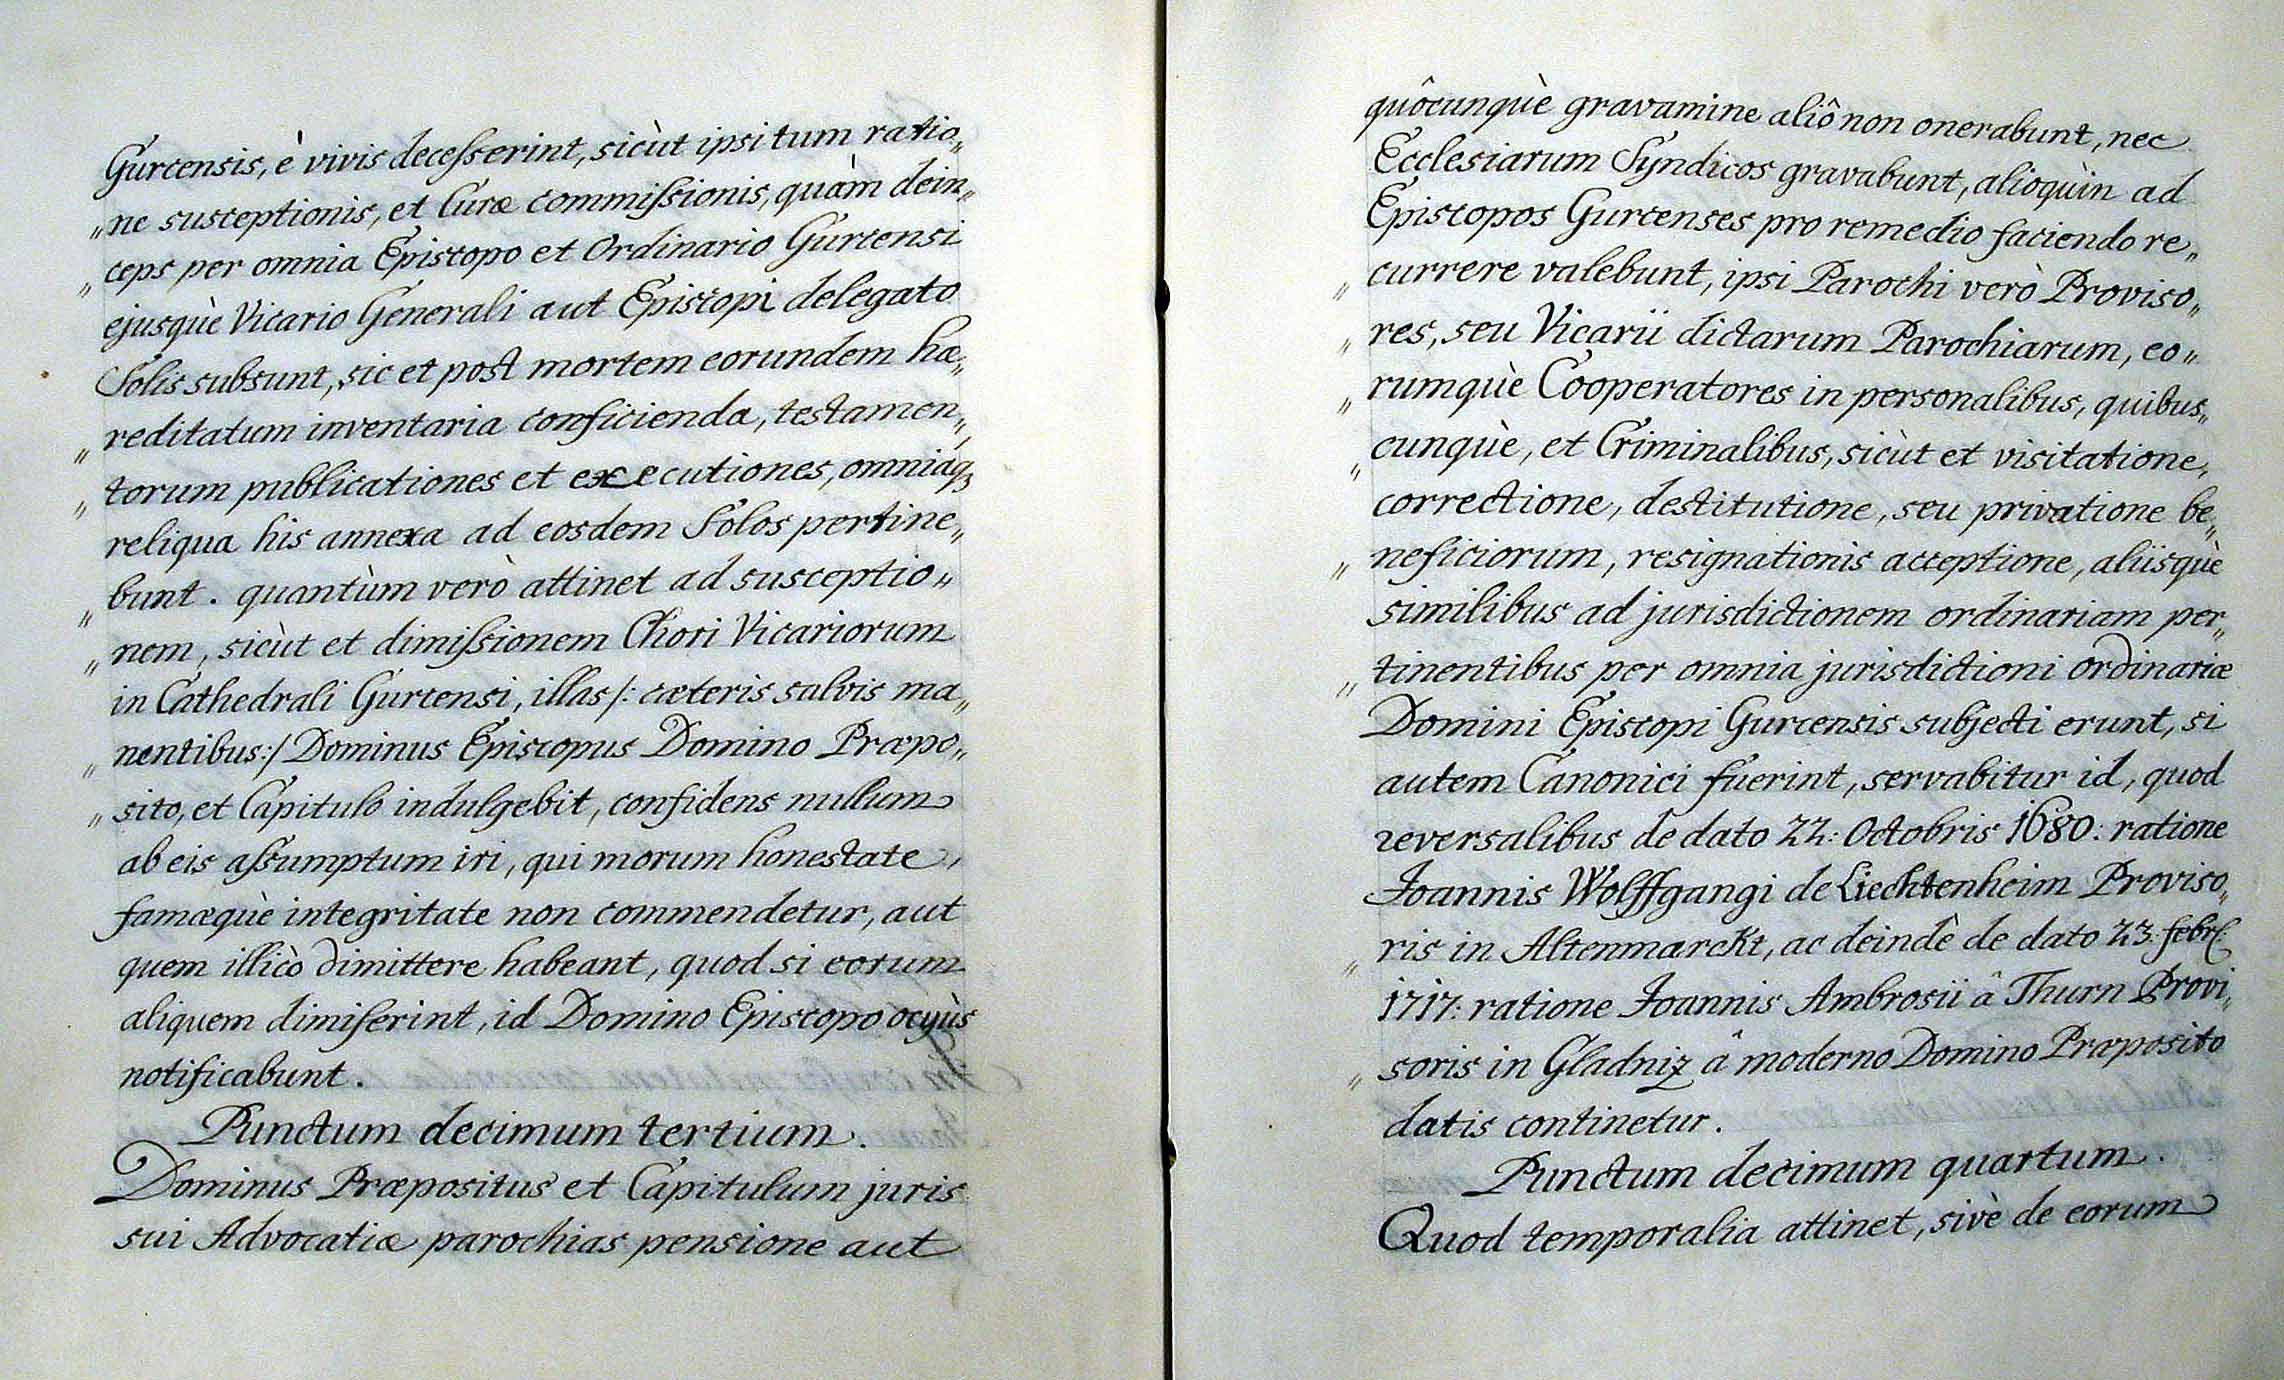 Gurcensis, è vivis decesserint, sicùt ipsi tum ratio„
„ne susceptionis, et Curæ commissionis, quàm dein„
„ceps per omnia Episcopo et Ordinario Gurcensi
ejusquè Vicario Generali aut Episcopi delegato
Solis subsunt, sic et post mortem eorundem hæ„
„reditatum inventaria conficienda, testamen„
„torum publicationes et executiones, omniaq3
reliqua his annexa ad eosdem Solos pertine„
„bunt. quantùm verò attinet ad susceptio„
„nem, sicùt et dimissionem Chori Vicariorum
in Cathedrali Gurcensi, illas /: cæteris salvis ma„
„nentibus:/ Dominus Episcopus Domino Præpo„
„sito, et Capitulo indulgebit, confidens nullum
ab eis assumptum iri, qui morum honestate,
famæquè integritate non commendetur, aut
quem illicò dimittere habeant, quod si eorum
aliquem dimiserint, id Domino Episcopo ocyùs
notificabunt.
Punctum decimum tertium.
Dominus Præpositus et Capitulum juris
sui Advocatiæ parochias pensione aut
quôcunquè gravamine aliô non onerabunt, nec
Ecclesiarum Syndicos gravabunt, alioquìn ad
Episcopos Gurcenses pro remedio faciendo re„
„currere valebunt, ipsi Parochi verò Proviso„
„res, seu Vicarii dictarum Parochiarum, eo„
„rumquè Cooperatores in personalibus, quibus„
„cunquè, et Criminalibus, sicùt et visitatione,
correctione, destitutione, seu privatione be„
„neficiorum, resignationis acceptione, aliisquè
similibus ad jurisdictionem ordinariam per„
„tinentibus per omnia jurisdictioni ordinariæ
Domini Episcopi Gurcensis subjecti erunt, si
autem Canonici fuerint, servabitur id, quod
reversalibus de dato 22: Octobris 1680: ratione
Joannis Wolffgangi de Liechtenheim Proviso„
„ris in Altenmarckt, ac deindè de dato 23. febr.
1717: ratione Joannis Ambrosii â Thurn Provi„
„soris in Gladniz â moderno Domino Præposito
datis continetur.
Punctum decimum quartum.
Quod temporalia attinet, sivè de eorum